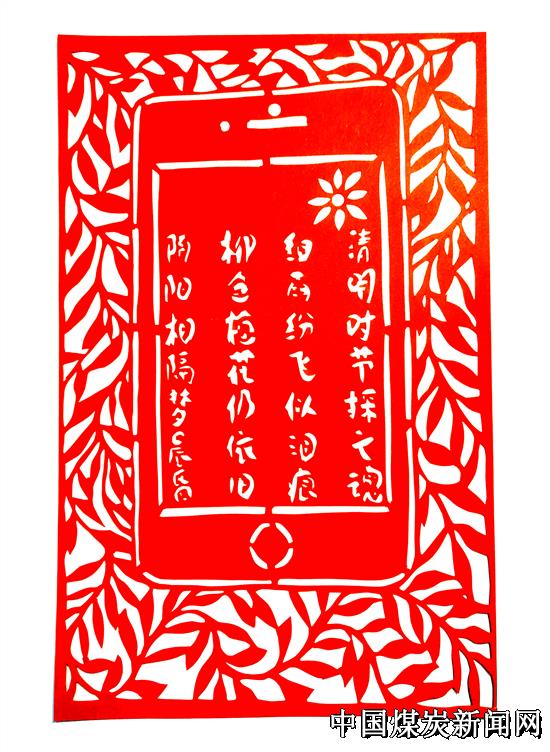 清明时节探文魂
细雨纷飞似泪痕
柳色梅花仍依旧
阴阳相隔梦晨昏
中国煤炭新闻网